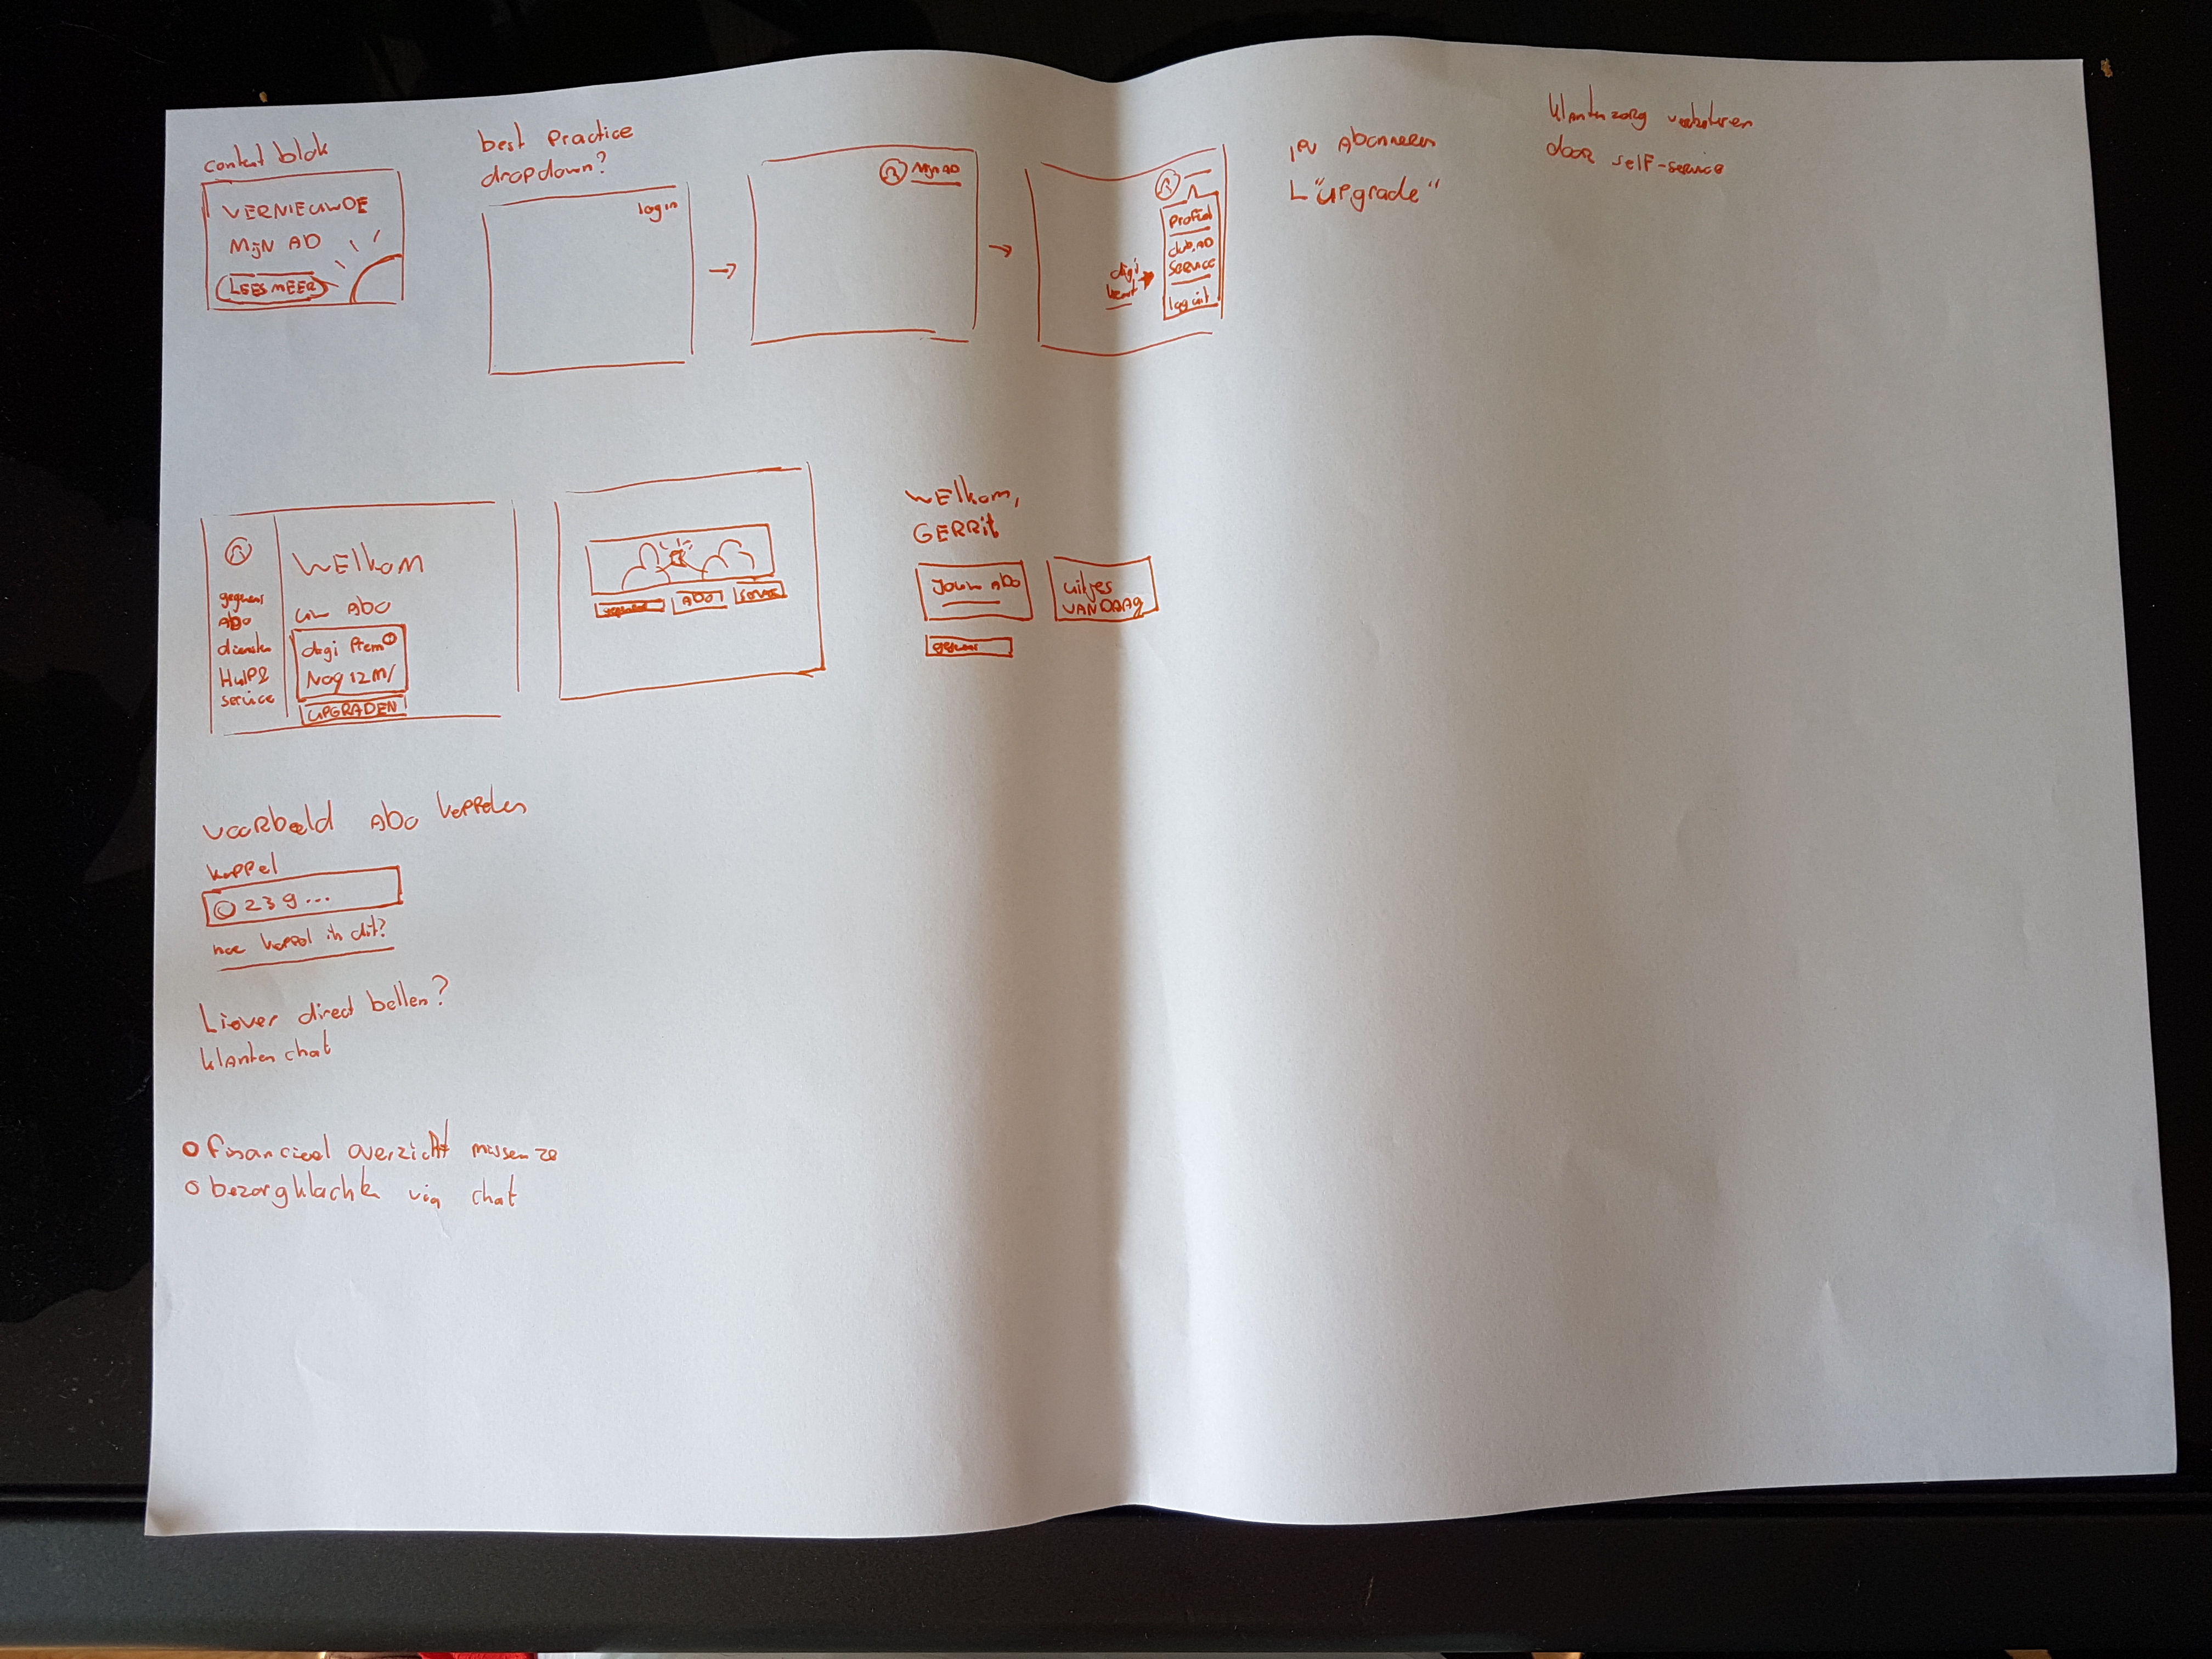 content blok
VERNIEUWDE
MijN AD
LEES MEER
best practice
dropdown?
login
Mijn AD
Profiel
club.AD
SERVICE
log uit
digi
krant
ipv Abonneren
"upgrade"
klantenzorg verbeteren
door self-service
gegevens
Abo
diensten
Hulp &
service
WElkom
uw Abo
digi Prem
Nog 12 M/
UPGRADEN
gegevens
ABO
SERVICE
WElkom,
GERRit
Jouw Abo
uitjes
VANDAAG
gegevens
VOORbeeld Abo koppelen
koppel
239...
hoe koppel ik dit?
Liever direct bellen?
klanten chat
financieel overzicht missen ze
bezorgklachten via chat